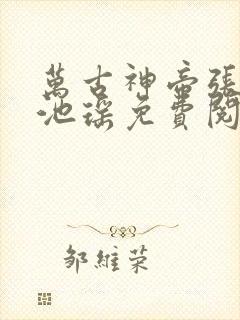 萬古神帝張
池瑤免費閱
邹維荣